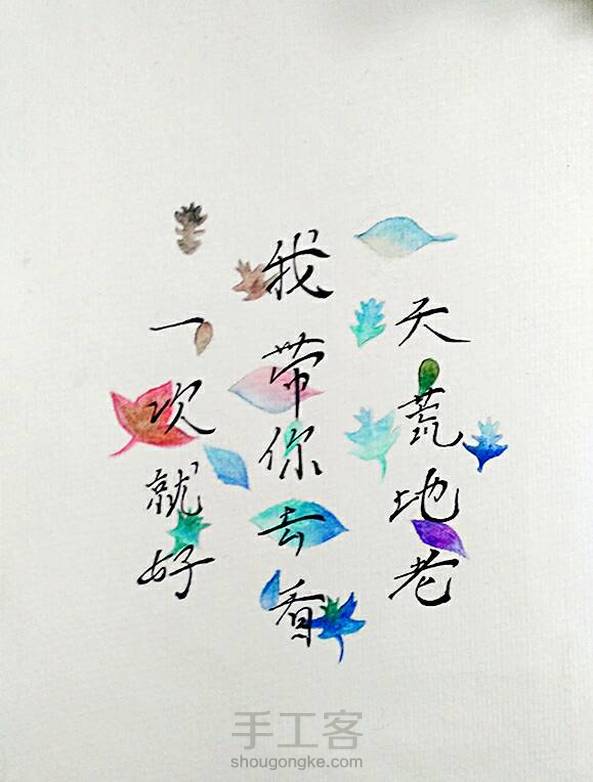 一次就好
我带你去看
天荒地老
手工客
shougongke.com